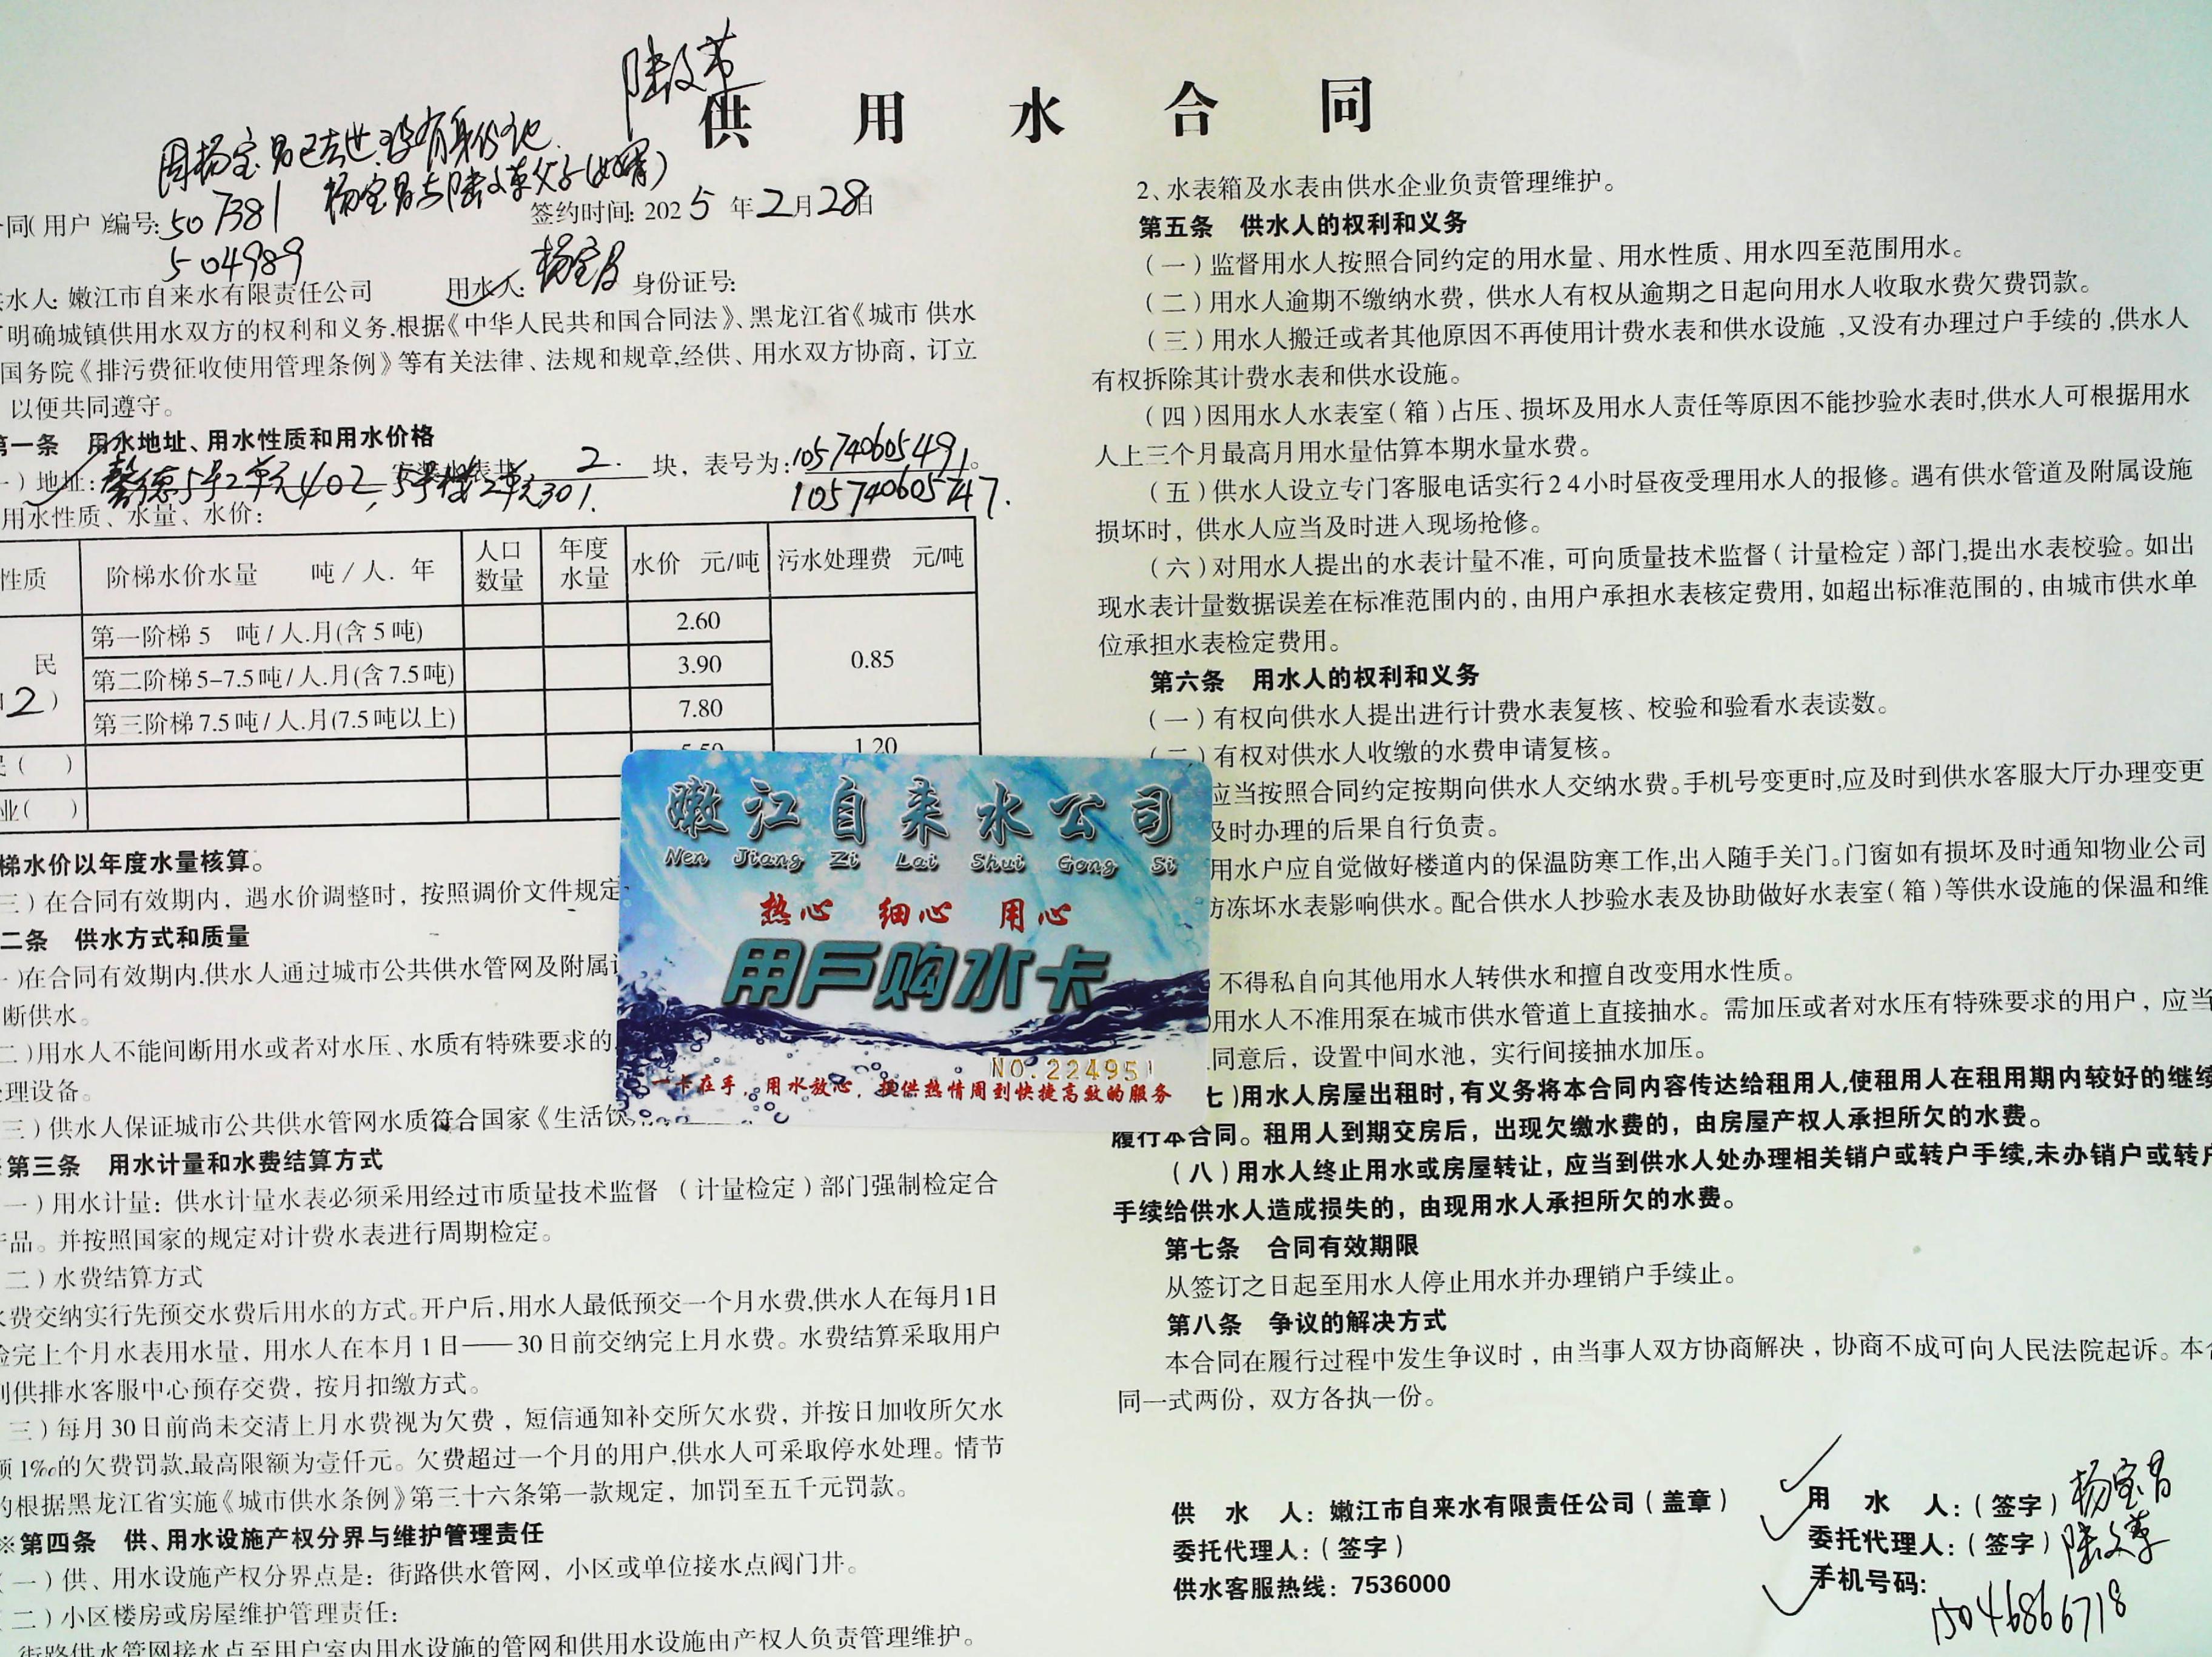 供 用 水 合 同
因杨宝昌已去世.没有身份证
杨宝昌与陆文革父子(女婿)
同(用户)编号: 507381
504989
签约时间: 2025 年 2 月 28 日
水人: 嫩江市自来水有限责任公司 用水人: 杨宝昌 身份证号:
明确城镇供用水双方的权利和义务,根据《中华人民共和国合同法》、黑龙江省《城市 供水
国务院《排污费征收使用管理条例》等有关法律、法规和规章,经供、用水双方协商，订立
以便共同遵守。
第一条 用水地址、用水性质和用水价格
一）地址: 馨德5号2单元402, 5号楼2单元301. 2. 块，表号为: 105740605491。
105740605747.
用水性质、水量、水价:
性质 阶梯水价水量 吨/人. 年 人口数量 年度水量 水价 元/吨 污水处理费 元/吨
民 第一阶梯 5 吨/人.月(含 5 吨) 2.60 0.85
2) 第二阶梯 5-7.5 吨/人.月(含 7.5 吨) 3.90
第三阶梯 7.5 吨/人.月(7.5 吨以上) 7.80
( ) 5.50 1.20
业( )
梯水价以年度水量核算。
三）在合同有效期内，遇水价调整时，按照调价文件规定
二条 供水方式和质量
一)在合同有效期内,供水人通过城市公共供水管网及附属
断供水。
二)用水人不能间断用水或者对水压、水质有特殊要求的
理设备。
三)供水人保证城市公共供水管网水质符合国家《生活饮
第三条 用水计量和水费结算方式
一)用水计量: 供水计量水表必须采用经过市质量技术监督 (计量检定)部门强制检定合
品。并按照国家的规定对计费水表进行周期检定。
二)水费结算方式
费交纳实行先预交水费后用水的方式。开户后,用水人最低预交一个月水费,供水人在每月1日
完上个月水表用水量，用水人在本月 1 日——30 日前交纳完上月水费。水费结算采取用户
供排水客服中心预存交费，按月扣缴方式。
三)每月 30 日前尚未交清上月水费视为欠费，短信通知补交所欠水费，并按日加收所欠水
1‰的欠费罚款,最高限额为壹仟元。欠费超过一个月的用户,供水人可采取停水处理。情节
的根据黑龙江省实施《城市供水条例》第三十六条第一款规定，加罚至五千元罚款。
※第四条 供、用水设施产权分界与维护管理责任
(一)供、用水设施产权分界点是: 街路供水管网，小区或单位接水点阀门井。
(二)小区楼房或房屋维护管理责任:
街路供水管网接水点至用户室内用水设施的管网和供用水设施由产权人负责管理维护。
2、水表箱及水表由供水企业负责管理维护。
第五条 供水人的权利和义务
(一)监督用水人按照合同约定的用水量、用水性质、用水四至范围用水。
(二)用水人逾期不缴纳水费，供水人有权从逾期之日起向用水人收取水费欠费罚款。
(三)用水人搬迁或者其他原因不再使用计费水表和供水设施 ,又没有办理过户手续的 ,供水人
有权拆除其计费水表和供水设施。
(四)因用水人水表室(箱)占压、损坏及用水人责任等原因不能抄验水表时,供水人可根据用水
人上三个月最高月用水量估算本期水量水费。
(五)供水人设立专门客服电话实行24小时昼夜受理用水人的报修。遇有供水管道及附属设施
损坏时，供水人应当及时进入现场抢修。
(六)对用水人提出的水表计量不准，可向质量技术监督(计量检定)部门,提出水表校验。如出
现水表计量数据误差在标准范围内的，由用户承担水表核定费用，如超出标准范围的，由城市供水单
位承担水表检定费用。
第六条 用水人的权利和义务
(一)有权向供水人提出进行计费水表复核、校验和验看水表读数。
(二)有权对供水人收缴的水费申请复核。
应当按照合同约定按期向供水人交纳水费。手机号变更时,应及时到供水客服大厅办理变更
及时办理的后果自行负责。
用水户应自觉做好楼道内的保温防寒工作,出入随手关门。门窗如有损坏及时通知物业公司
防冻坏水表影响供水。配合供水人抄验水表及协助做好水表室(箱)等供水设施的保温和维
不得私自向其他用水人转供水和擅自改变用水性质。
)用水人不准用泵在城市供水管道上直接抽水。需加压或者对水压有特殊要求的用户，应当
同意后，设置中间水池，实行间接抽水加压。
七)用水人房屋出租时,有义务将本合同内容传达给租用人,使租用人在租用期内较好的继续
履行本合同。租用人到期交房后，出现欠缴水费的，由房屋产权人承担所欠的水费。
(八)用水人终止用水或房屋转让，应当到供水人处办理相关销户或转户手续,未办销户或转户
手续给供水人造成损失的，由现用水人承担所欠的水费。
第七条 合同有效期限
从签订之日起至用水人停止用水并办理销户手续止。
第八条 争议的解决方式
本合同在履行过程中发生争议时，由当事人双方协商解决，协商不成可向人民法院起诉。本合
同一式两份，双方各执一份。
供 水 人: 嫩江市自来水有限责任公司(盖章)
委托代理人:(签字)
供水客服热线: 7536000
用 水 人:(签字) 杨宝昌
委托代理人:(签字) 陆文革
手机号码: 15046866718
嫩江自来水公司
Nen Jiang Zi Lai Shui Gong Si
热心 细心 用心
用户购水卡
NO.224951
一卡在手，用水放心，提供热情周到快捷高效的服务